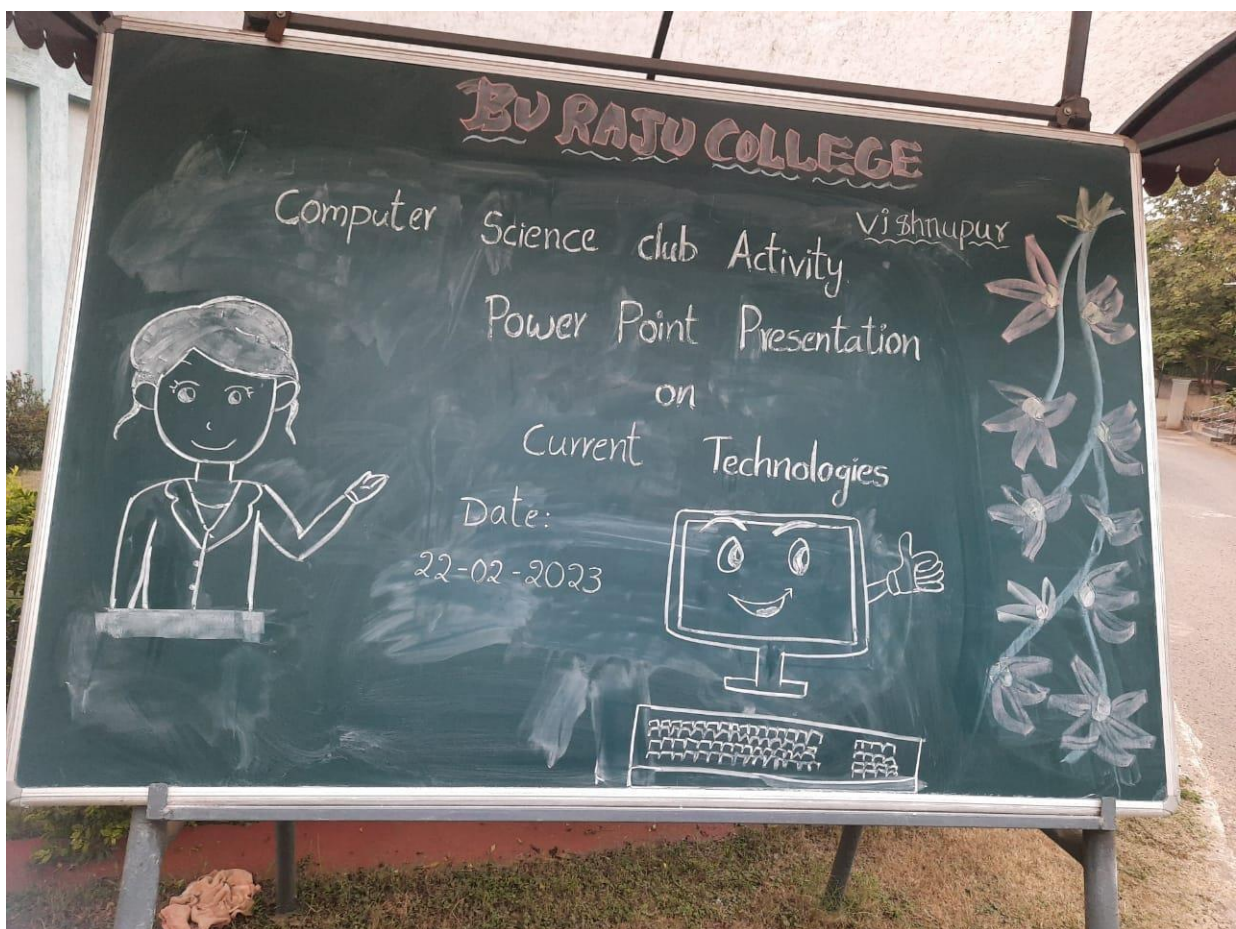 BV RAJU COLLEGE
Vishnupur
Computer Science club Activity
Power Point Presentation
on
Current Technologies
Date:
22-02-2023